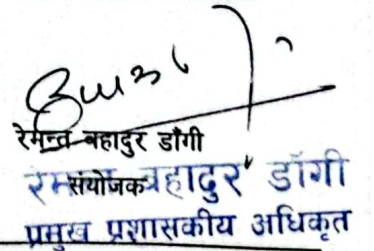 रेमन्त बहादुर डाँगी
संयोजक
रेमन्त बहादुर डाँगी
प्रमुख प्रशासकीय अधिकृत